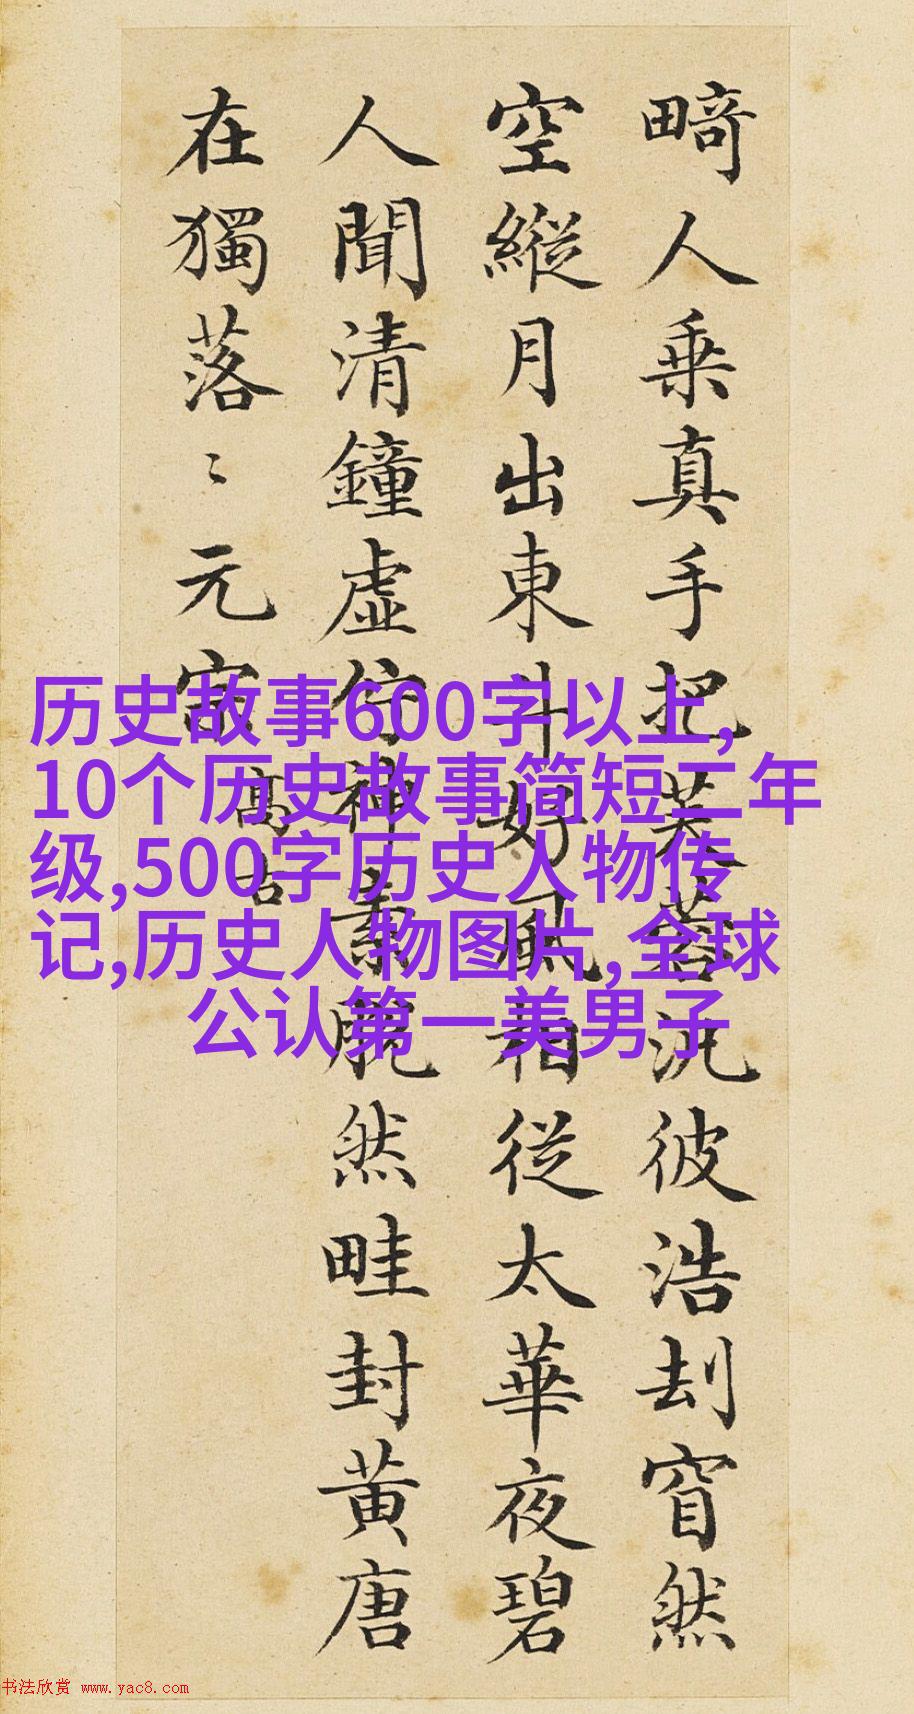 畸人乗真手把芙蓉汎彼浩刦窅然
空縱月出東斗好風相從太華夜碧
人聞清鐘虚佇神素脱然畦封黄唐
在獨落〻元宗
高古
历史故事600字以上,
10个历史故事简短二年
级,500字历史人物传
记,历史人物图片,全球
公认第一美男子
书法欣赏 www.yac8.com